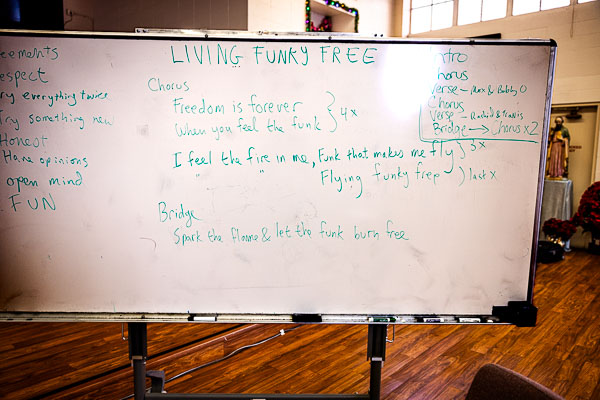 eements
espect
ry everything twice
Try something new
Honest
Have opinions
open mind
FUN
LIVING FUNKY FREE
Chorus
Freedom is forever
When you feel the funk
4x
I feel the fire in me, Funk that makes me fly 3x
" " Flying funky free last x
Bridge
Spark the flame & let the funk burn free
ntro
horus
Verse - & Bobby O
Chorus
Verse - & Travis
Bridge → Chorus x2